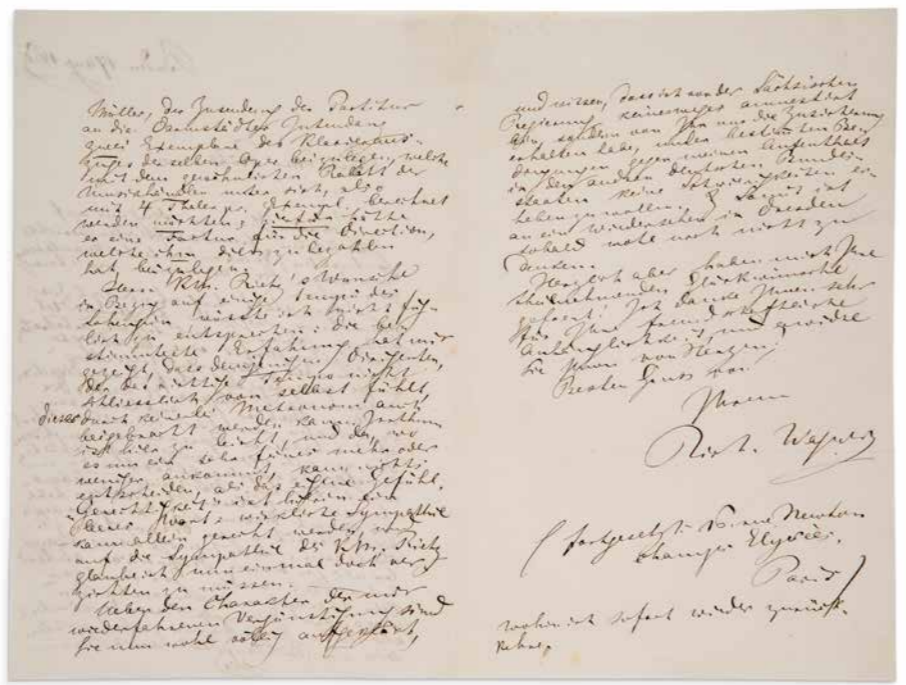 Müller, der Zusendung der Partitur
an die Darmstädter Intendanz
zwei Exemplare des Klavieraus-
zuges derselben Oper beizulegen, welche
mit dem gewöhnlichen Rabatt der
Musikhändler unter sich, also
mit 4 Thaler pr. Exempl. berechnet
werden möchten; hätte
er eine Factur für die Direction,
welche ihm dies zu bezahlen
hat, beizulegen.
Herrn KM. Rietz's Wünsche
in Bezug auf einige Tempi des
Lohengrin wüsste ich nicht füg-
lich zu entsprechen: die be-
stimmteste Erfahrung hat mir
gezeigt, dass demjenigen Dirigenten,
der das richtige Tempo nicht
schliesslich von selbst fühlt,
dieses durch keinerlei Metronom
beigebracht werden kann. Irrthum
ist hier zu leicht, und da, wo
es nur ein sehr feines mehr oder
weniger ankommt, kann nichts
entscheiden, als das eigene Gefühl.
"Gerechtigkeit" ist hierin ein
Wort: wirkliche Sympathie
kann allein gerecht werden, und
auf die Sympathie des KM. Rietz
glaube ich nun einmal doch ver-
zichten zu müssen.
Ueber den Charakter der mir
wiederfahrenen Vergünstigung sind
Sie nun wohl völlig aufgeklärt,
und wissen, dass ich von der Sächsischen
Regierung keineswegs amnestirt
bin, sondern von Ihr nur die Zusicherung
erhalten habe, unter bestimmten Be-
dingungen gegen meinen Aufenthalt
in den andern deutschen Bundes-
staaten keine Schwierigkeiten er-
heben zu wollen. Somit ist
an ein Wiedersehen in Dresden
sobald wohl noch nicht zu
denken.
Herzlich aber haben mich Ihre
theilnehmenden Glückwünsche
gefreut! Ich danke Ihnen sehr
für Ihre freundschaftliche
Anhänglichkeit, und
Sie Ihnen von Herzen!
Besten Gruss von
Ihrem
Rich. Wagner
(fortgesetzt: 16 rue Newton
champs Elysées.
Paris)
wohin ich sofort wieder zurück-
kehre.